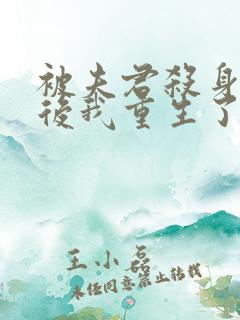 被夫君殺身
後我重生了
王小磊
未任同意禁止转载